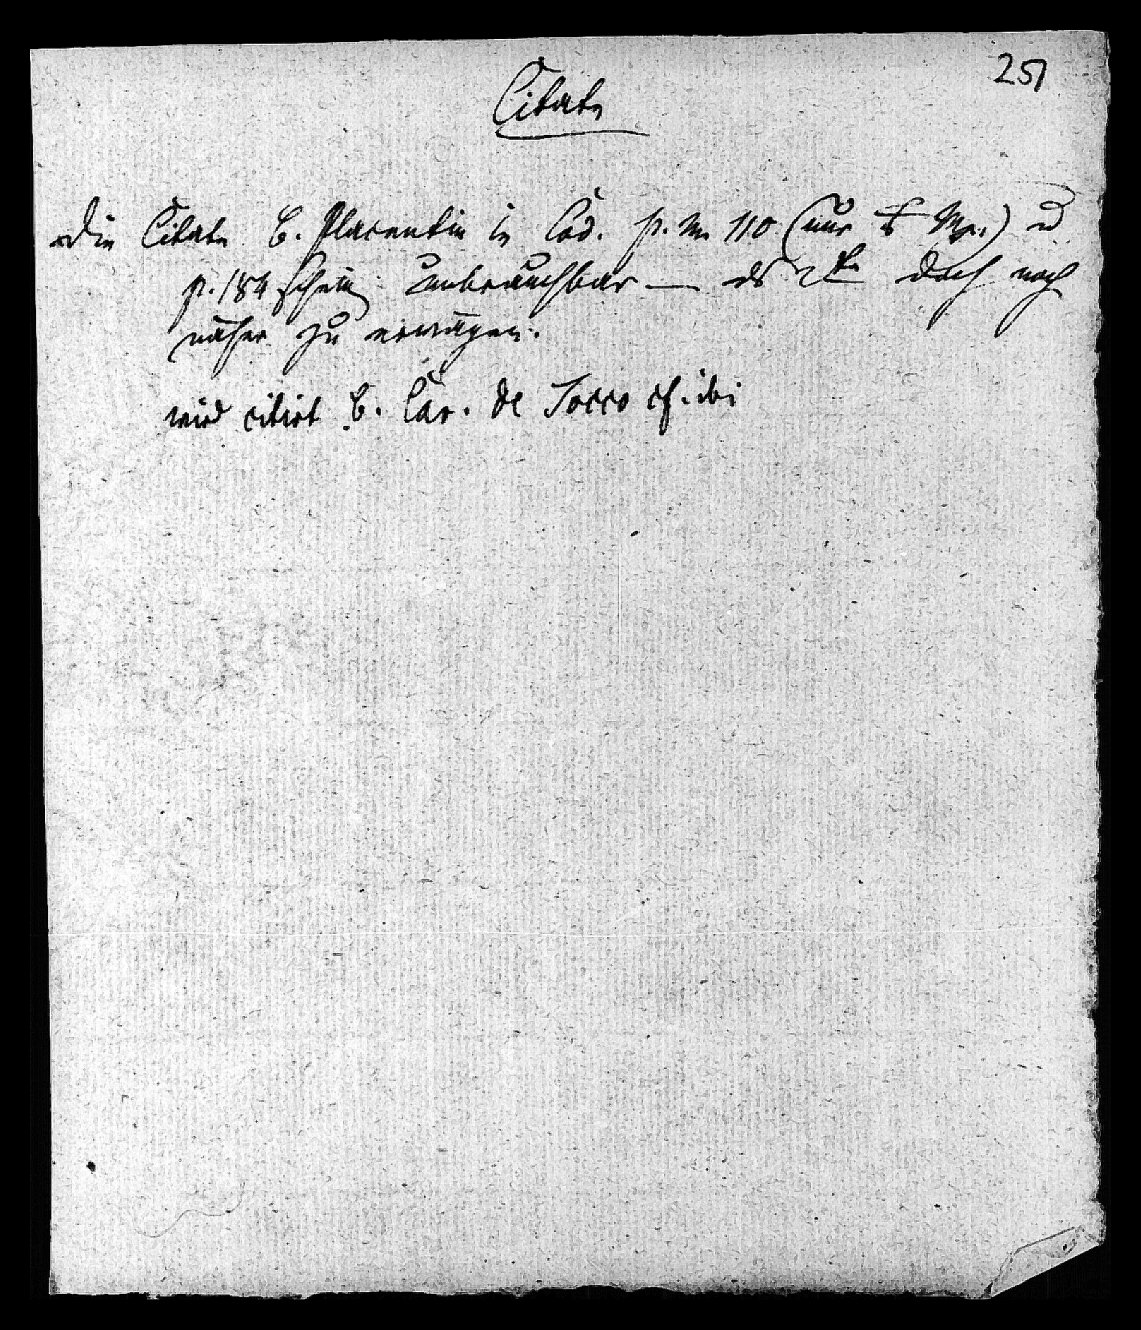 251
Citate
Die Citate b. Placentin in Cod. p. m. 110 (nur Mp.) u
p. 184 schein unbrauchbar — ds doch noch
näher zu erwägen.
wird citirt b. Car. de Tocco cf. ibi